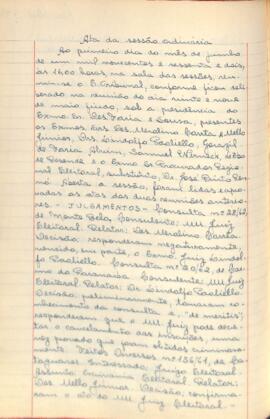 Ata da sessão ordinária
Ao primeiro dia do mês de junho
de um mil novecentos e sessenta e dois,
às 16,00 horas, na sala das sessões, reu-
niu-se o E. Tribunal, conforme ficou deli-
berado na reunião do dia vinte e nove
de maio findo, sob a presidência do
Exmo. Sr. Des. Faria e Sousa, presentes
os Exmos. Srs. Des. Merolino Corrêa e Mello
Júnior, Drs. Lindolfo Paoliello, Gorazil
de Faria Alvim, Samuel Werneck,
Resende e o Exmo. Sr. Procurador Regio-
nal Eleitoral, substituto, Dr. José Pinto
Aberta a sessão, foram lidas e apro-
vadas as atas das duas reuniões anterio-
res. - JULGAMENTOS - Consulta nº 28/62,
de Monte Belo. Consulente: MM. Juiz
Eleitoral. Relator: Des. Merolino Corrêa.
Decisão: responderam negativamente,
vencido, em parte, o Exmo. Juiz Lindolfo
Paoliello. Consulta nº 20/62, de
do Paranaíba. Consulente: MM. Juiz
Eleitoral. Relator: Dr. Lindolfo Paoliello.
Decisão: preliminarmente, tomaram co-
nhecimento da consulta e, "de meritis",
responderam que o MM. Juiz pode decre-
tar o cancelamento das inscrições, uma
vez provado que foram obtidas criminosa-
mente. Feitos Diversos nº 156/61, de
Interessado: Juízo Eleitoral.
Assunto: Eleitoral. Relator:
Des. Mello Júnior. Decisão: confirma-
ram o ato do MM. Juiz Eleitoral. -